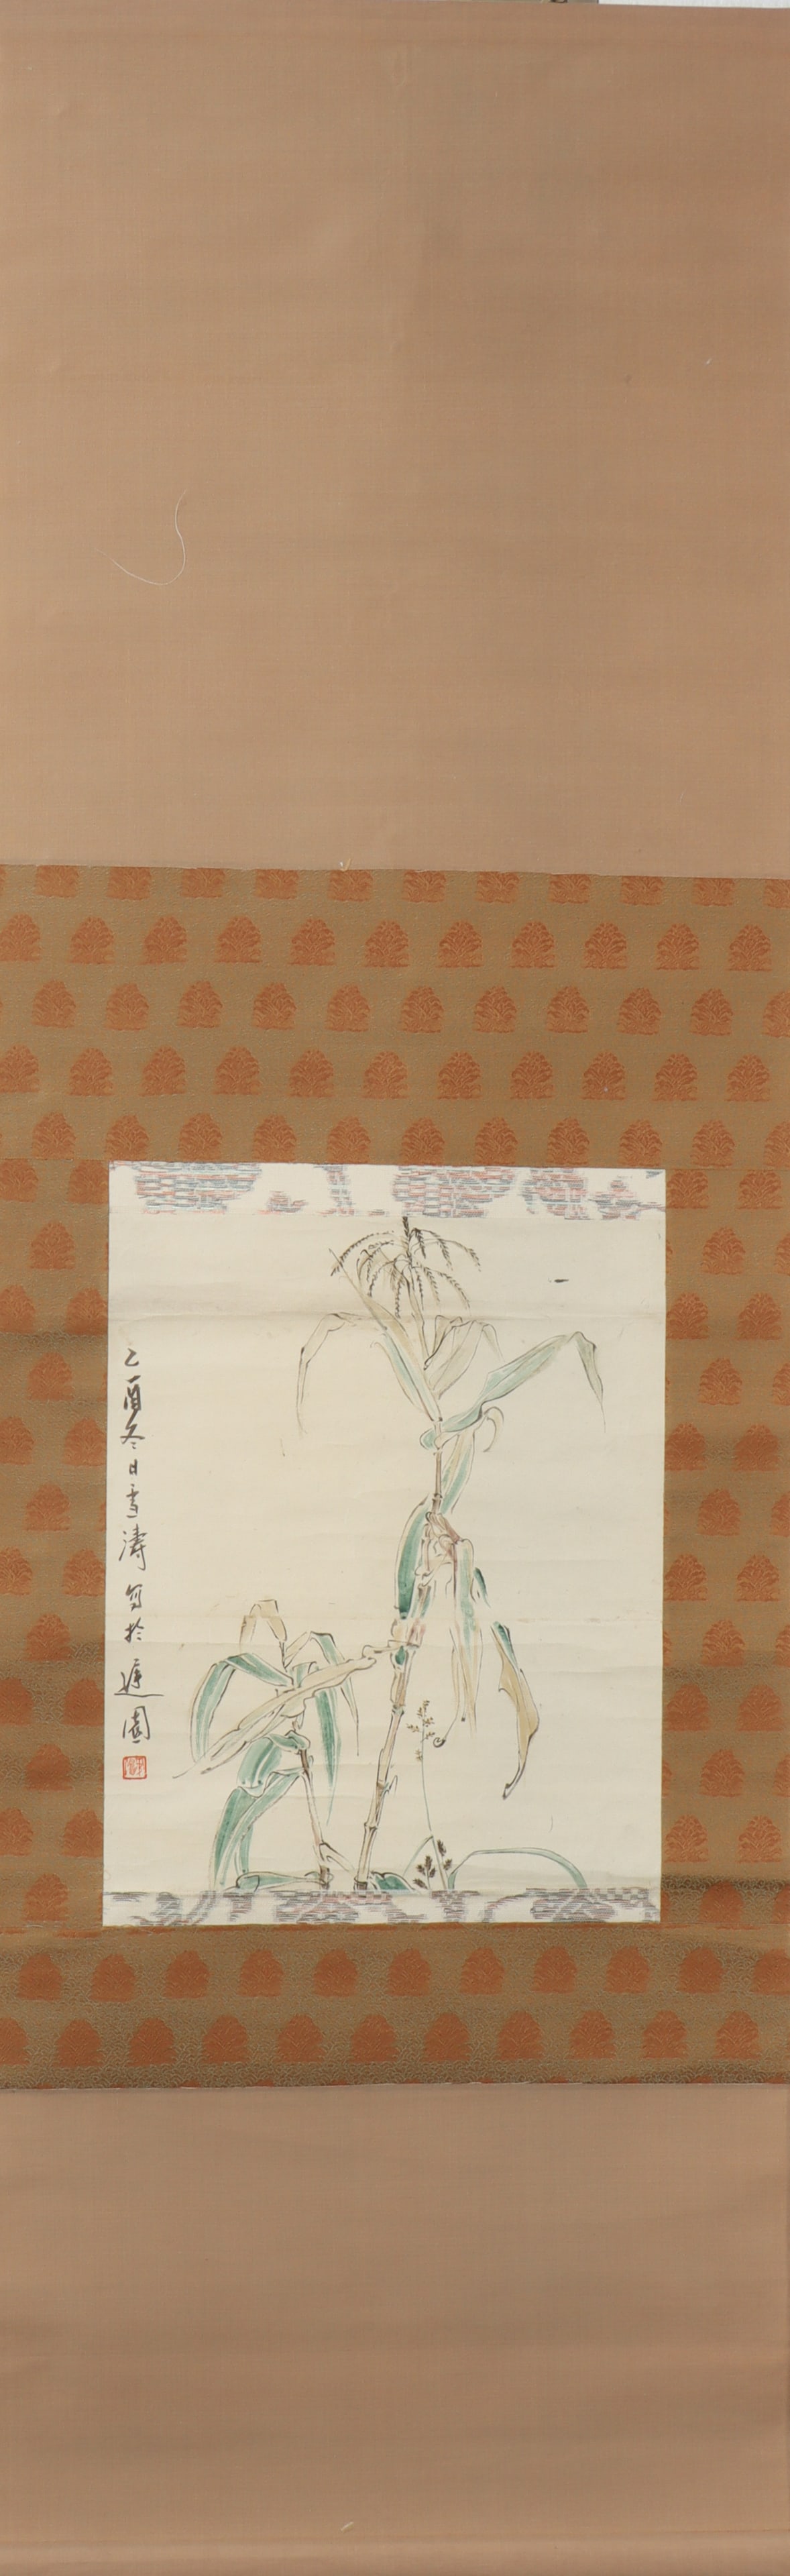 乙酉冬日雪濤寫於遲園